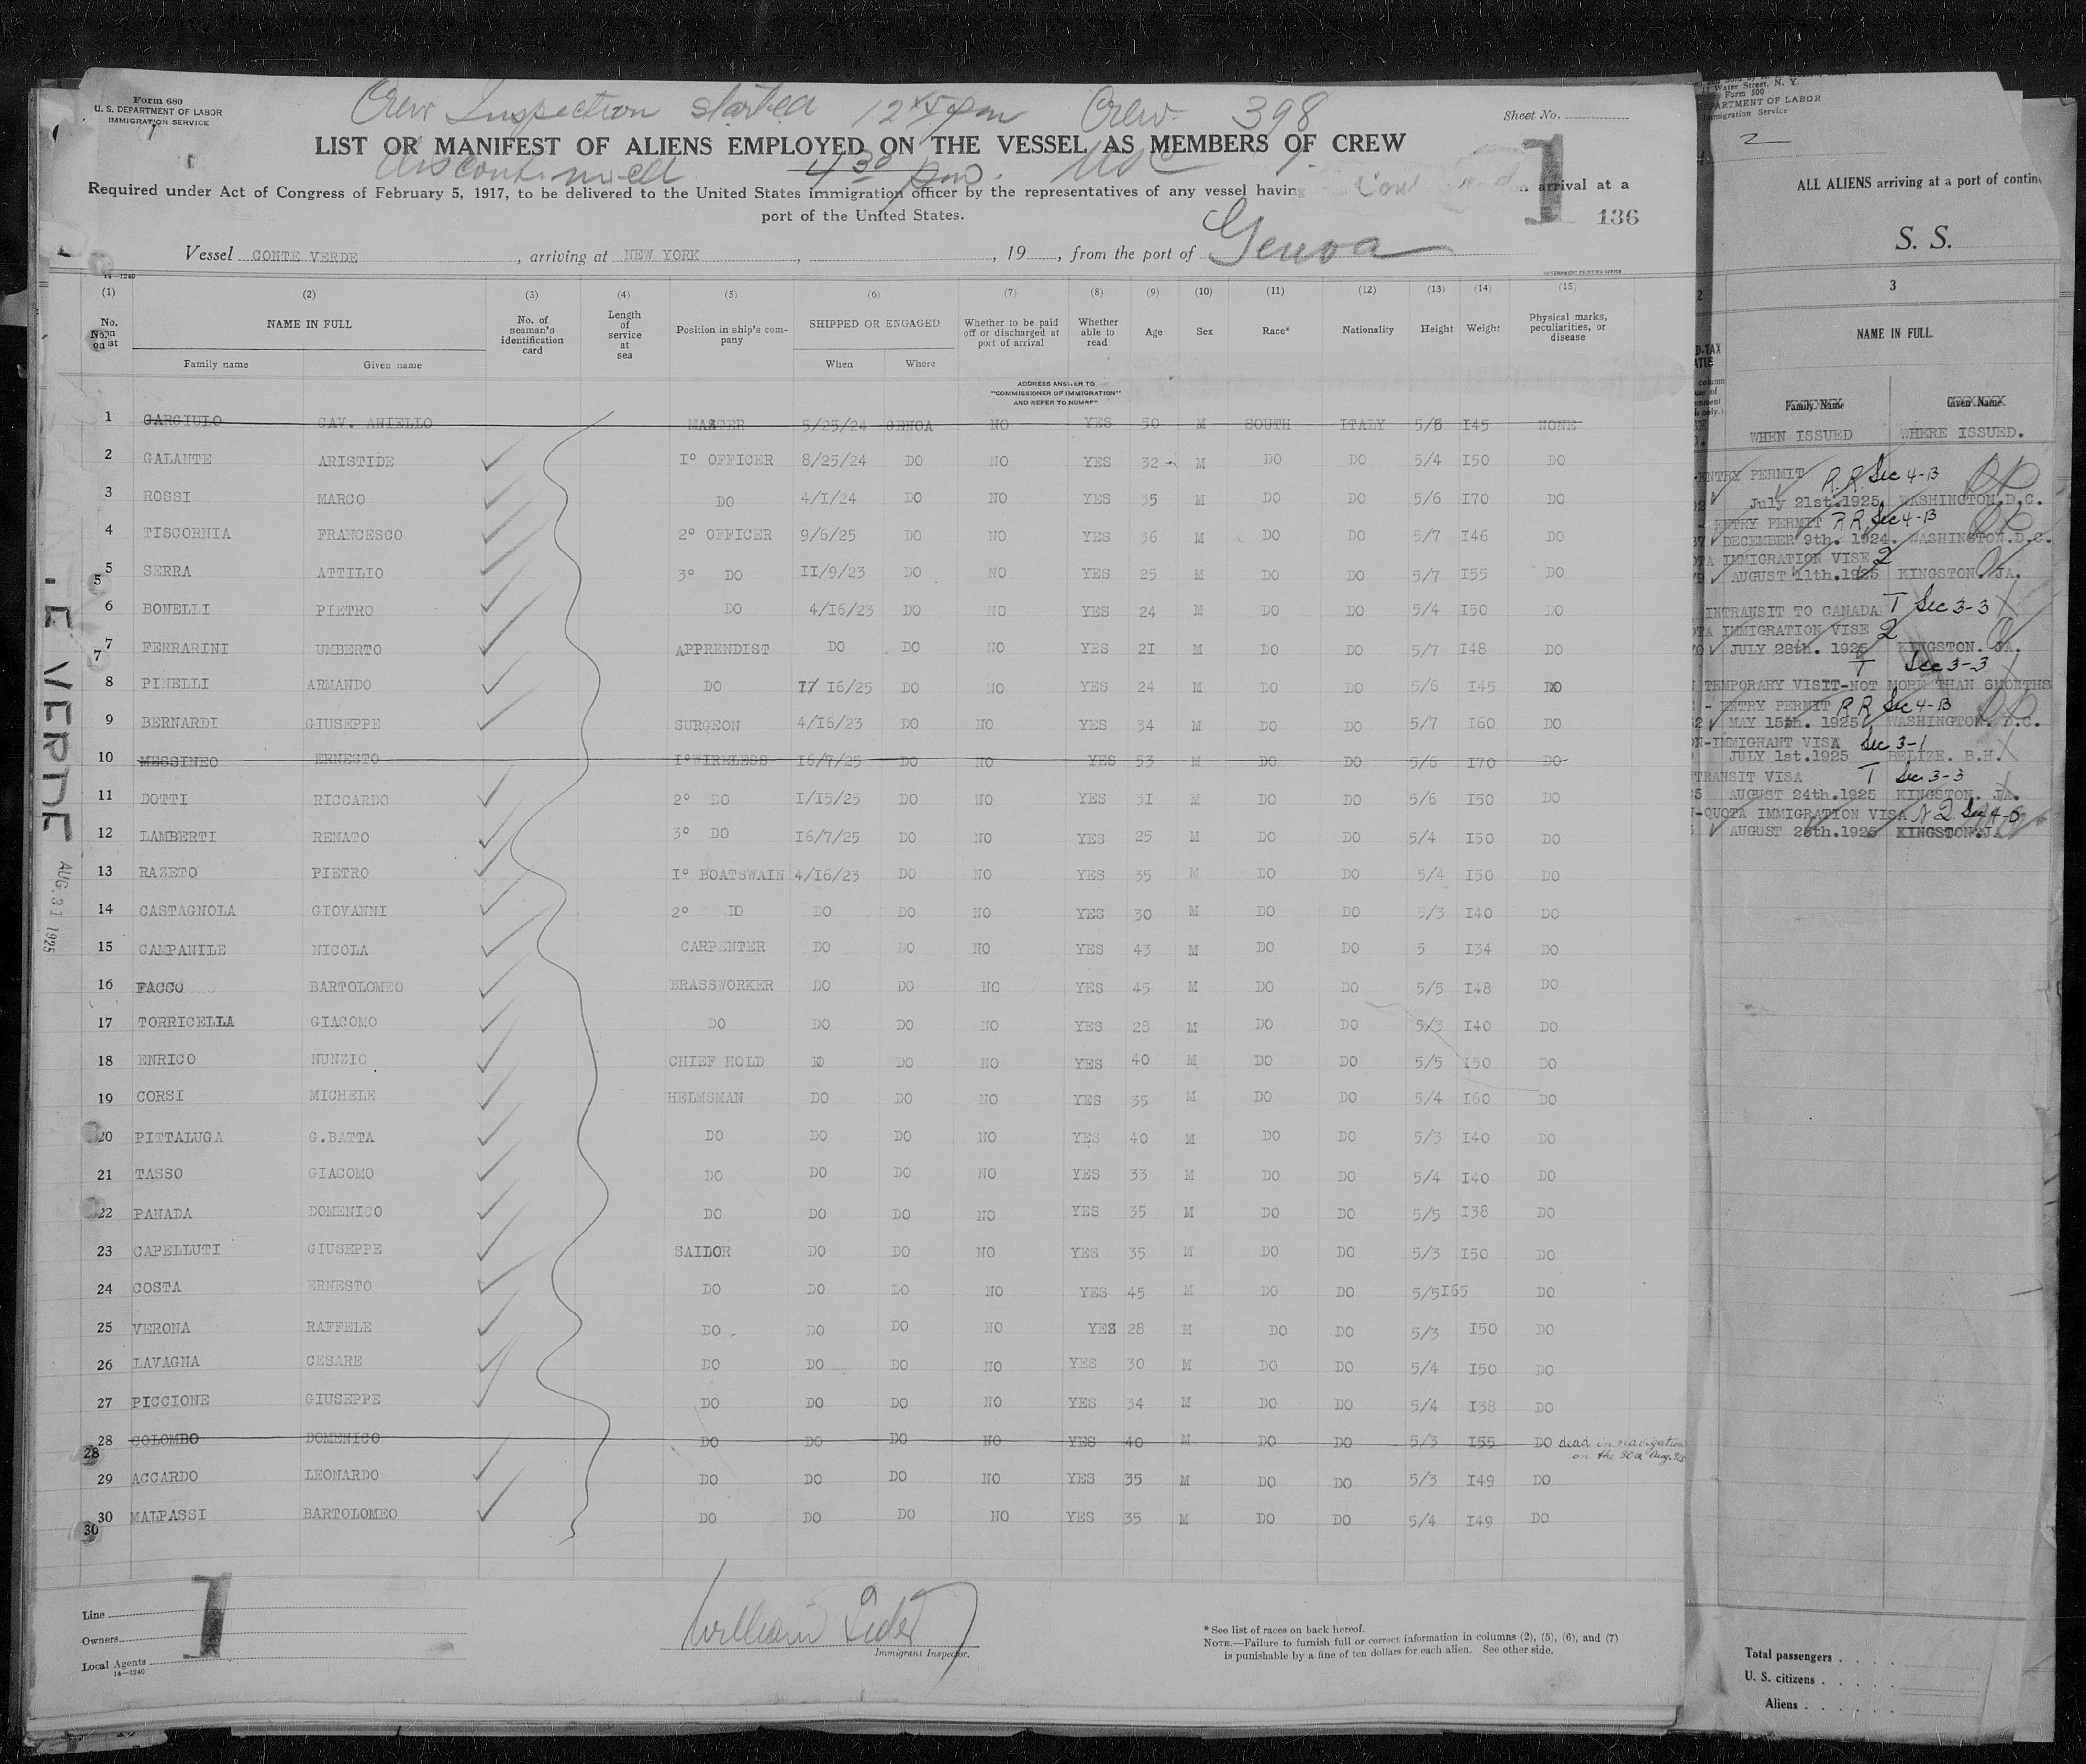 Form 680
U. S. DEPARTMENT OF LABOR
IMMIGRATION SERVICE
Crew Inspection started 2 45 pm Crew- 398
Sheet No.
LIST OR MANIFEST OF ALIENS EMPLOYED ON THE VESSEL AS MEMBERS OF CREW
discontinued 4 30 pm.
Required under Act of Congress of February 5, 1917, to be delivered to the United States immigration officer by the representatives of any vessel having arrival at a
port of the United States.
1
136
Vessel CONTE VERDE , arriving at NEW YORK , , 19 , from the port of Genoa
14—1240
GOVERNMENT PRINTING OFFICE
(1) (2) (3) (4) (5) (6) (7) (8) (9) (10) (11) (12) (13) (14) (15)
No. on list
NAME IN FULL
Family name Given name
No. of seaman's identification card
Length of service at sea
Position in ship's company
SHIPPED OR ENGAGED
When Where
Whether to be paid off or discharged at port of arrival
Whether able to read
Age
Sex
Race*
Nationality
Height
Weight
Physical marks, peculiarities, or disease
ADDRESS ANSWER TO
"COMMISSIONER OF IMMIGRATION"
AND REFER TO NUMBER
1 GARGIULO CAV. ANIELLO MASTER 5/25/24 GENOA NO YES 50 M SOUTH ITALY 5/6 I45 NONE
2 GALANTE ARISTIDE I° OFFICER 8/25/24 DO NO YES 32 M DO DO 5/4 I50 DO
3 ROSSI MARCO DO 4/I/24 DO NO YES 35 M DO DO 5/6 I70 DO
4 TISCORNIA FRANCESCO 2° OFFICER 9/6/25 DO NO YES 36 M DO DO 5/7 I46 DO
5 SERRA ATTILIO 3° DO II/9/23 DO NO YES 25 M DO DO 5/7 I55 DO
6 BONELLI PIETRO DO 4/I6/23 DO NO YES 24 M DO DO 5/4 I50 DO
7 FERRARINI UMBERTO APPRENDIST DO DO NO YES 2I M DO DO 5/7 I48 DO
8 PINELLI ARMANDO DO 7/ I6/25 DO NO YES 24 M DO DO 5/6 I45 DO
9 BERNARDI GIUSEPPE SURGEON 4/I6/23 DO NO YES 34 M DO DO 5/7 I60 DO
10 MESSINEO ERNESTO I°WIRELESS I6/7/25 DO NO YES 53 M DO DO 5/6 I70 DO
11 DOTTI RICCARDO 2° DO I/I5/25 DO NO YES 3I M DO DO 5/6 I50 DO
12 LAMBERTI RENATO 3° DO I6/7/25 DO NO YES 25 M DO DO 5/4 I50 DO
13 RAZETO PIETRO I° BOATSWAIN 4/I6/23 DO NO YES 35 M DO DO 5/4 I50 DO
14 CASTAGNOLA GIOVANNI 2° DO DO DO NO YES 30 M DO DO 5/3 I40 DO
15 CAMPANILE NICOLA CARPENTER DO DO NO YES 43 M DO DO 5 I34 DO
16 FACCO BARTOLOMEO BRASSWORKER DO DO NO YES 45 M DO DO 5/5 I48 DO
17 TORRICELLA GIACOMO DO DO DO NO YES 28 M DO DO 5/3 I40 DO
18 ENRICO NUNZIO CHIEF HOLD DO DO NO YES 40 M DO DO 5/5 I50 DO
19 CORSI MICHELE HELMSMAN DO DO NO YES 35 M DO DO 5/4 I60 DO
20 PITTALUGA G.BATTA DO DO DO NO YES 40 M DO DO 5/3 I40 DO
21 TASSO GIACOMO DO DO DO NO YES 33 M DO DO 5/4 I40 DO
22 PANADA DOMENICO DO DO DO NO YES 35 M DO DO 5/5 I38 DO
23 CAPELLUTI GIUSEPPE SAILOR DO DO NO YES 35 M DO DO 5/3 I50 DO
24 COSTA ERNESTO DO DO DO NO YES 45 M DO DO 5/5 I65 DO
25 VERONA RAFFELE DO DO DO NO YES 28 M DO DO 5/3 I50 DO
26 LAVAGNA CESARE DO DO DO NO YES 30 M DO DO 5/4 I50 DO
27 PICCIONE GIUSEPPE DO DO DO NO YES 34 M DO DO 5/4 I38 DO
28 COLOMBO DOMENICO DO DO DO NO YES 40 M DO DO 5/3 I55 DO dead in navigation
on the 30th Aug. 925
29 ACCARDO LEONARDO DO DO DO NO YES 35 M DO DO 5/3 I49 DO
30 MALPASSI BARTOLOMEO DO DO DO NO YES 35 M DO DO 5/4 I49 DO
5
7
28
30
E VERDE
AUG. 31 1925
Line
Owners
Local Agents
14—1240
1
Immigrant Inspector.
* See list of races on back hereof.
NOTE.—Failure to furnish full or correct information in columns (2), (5), (6), and (7)
is punishable by a fine of ten dollars for each alien. See other side.
Water Street, N. Y.
Form 500
DEPARTMENT OF LABOR
Immigration Service
2
ALL ALIENS arriving at a port of contin
S. S.
2 3
NAME IN FULL.
Family Name Given Name
WHEN ISSUED WHERE ISSUED.
ENTRY PERMIT R.R. Sec 4-B
July 21st.1925 WASHINGTON.D.C.
ENTRY PERMIT R R Sec 4-B
DECEMBER 9th. 1924. WASHINGTON.D.C.
IMMIGRATION VISE 2
AUGUST 11th.1925 KINGSTON. JA.
INTRANSIT TO CANADA T Sec 3-3
IMMIGRATION VISE 2
JULY 28th. 1925 KINGSTON. JA.
T Sec 3-3
TEMPORARY VISIT-NOT MORE THAN 6MONTHS
- ENTRY PERMIT R R Sec 4-B
MAY 15th. 1925 WASHINGTON. D.C.
N-IMMIGRANT VISA Sec 3-1
JULY 1st.1925 BELIZE. B.H.
TRANSIT VISA T Sec 3-3
AUGUST 24th.1925 KINGSTON. JA.
-QUOTA IMMIGRATION VISA
AUGUST 28th.1925 KINGSTON.JA
Total passengers
U. S. citizens
Aliens